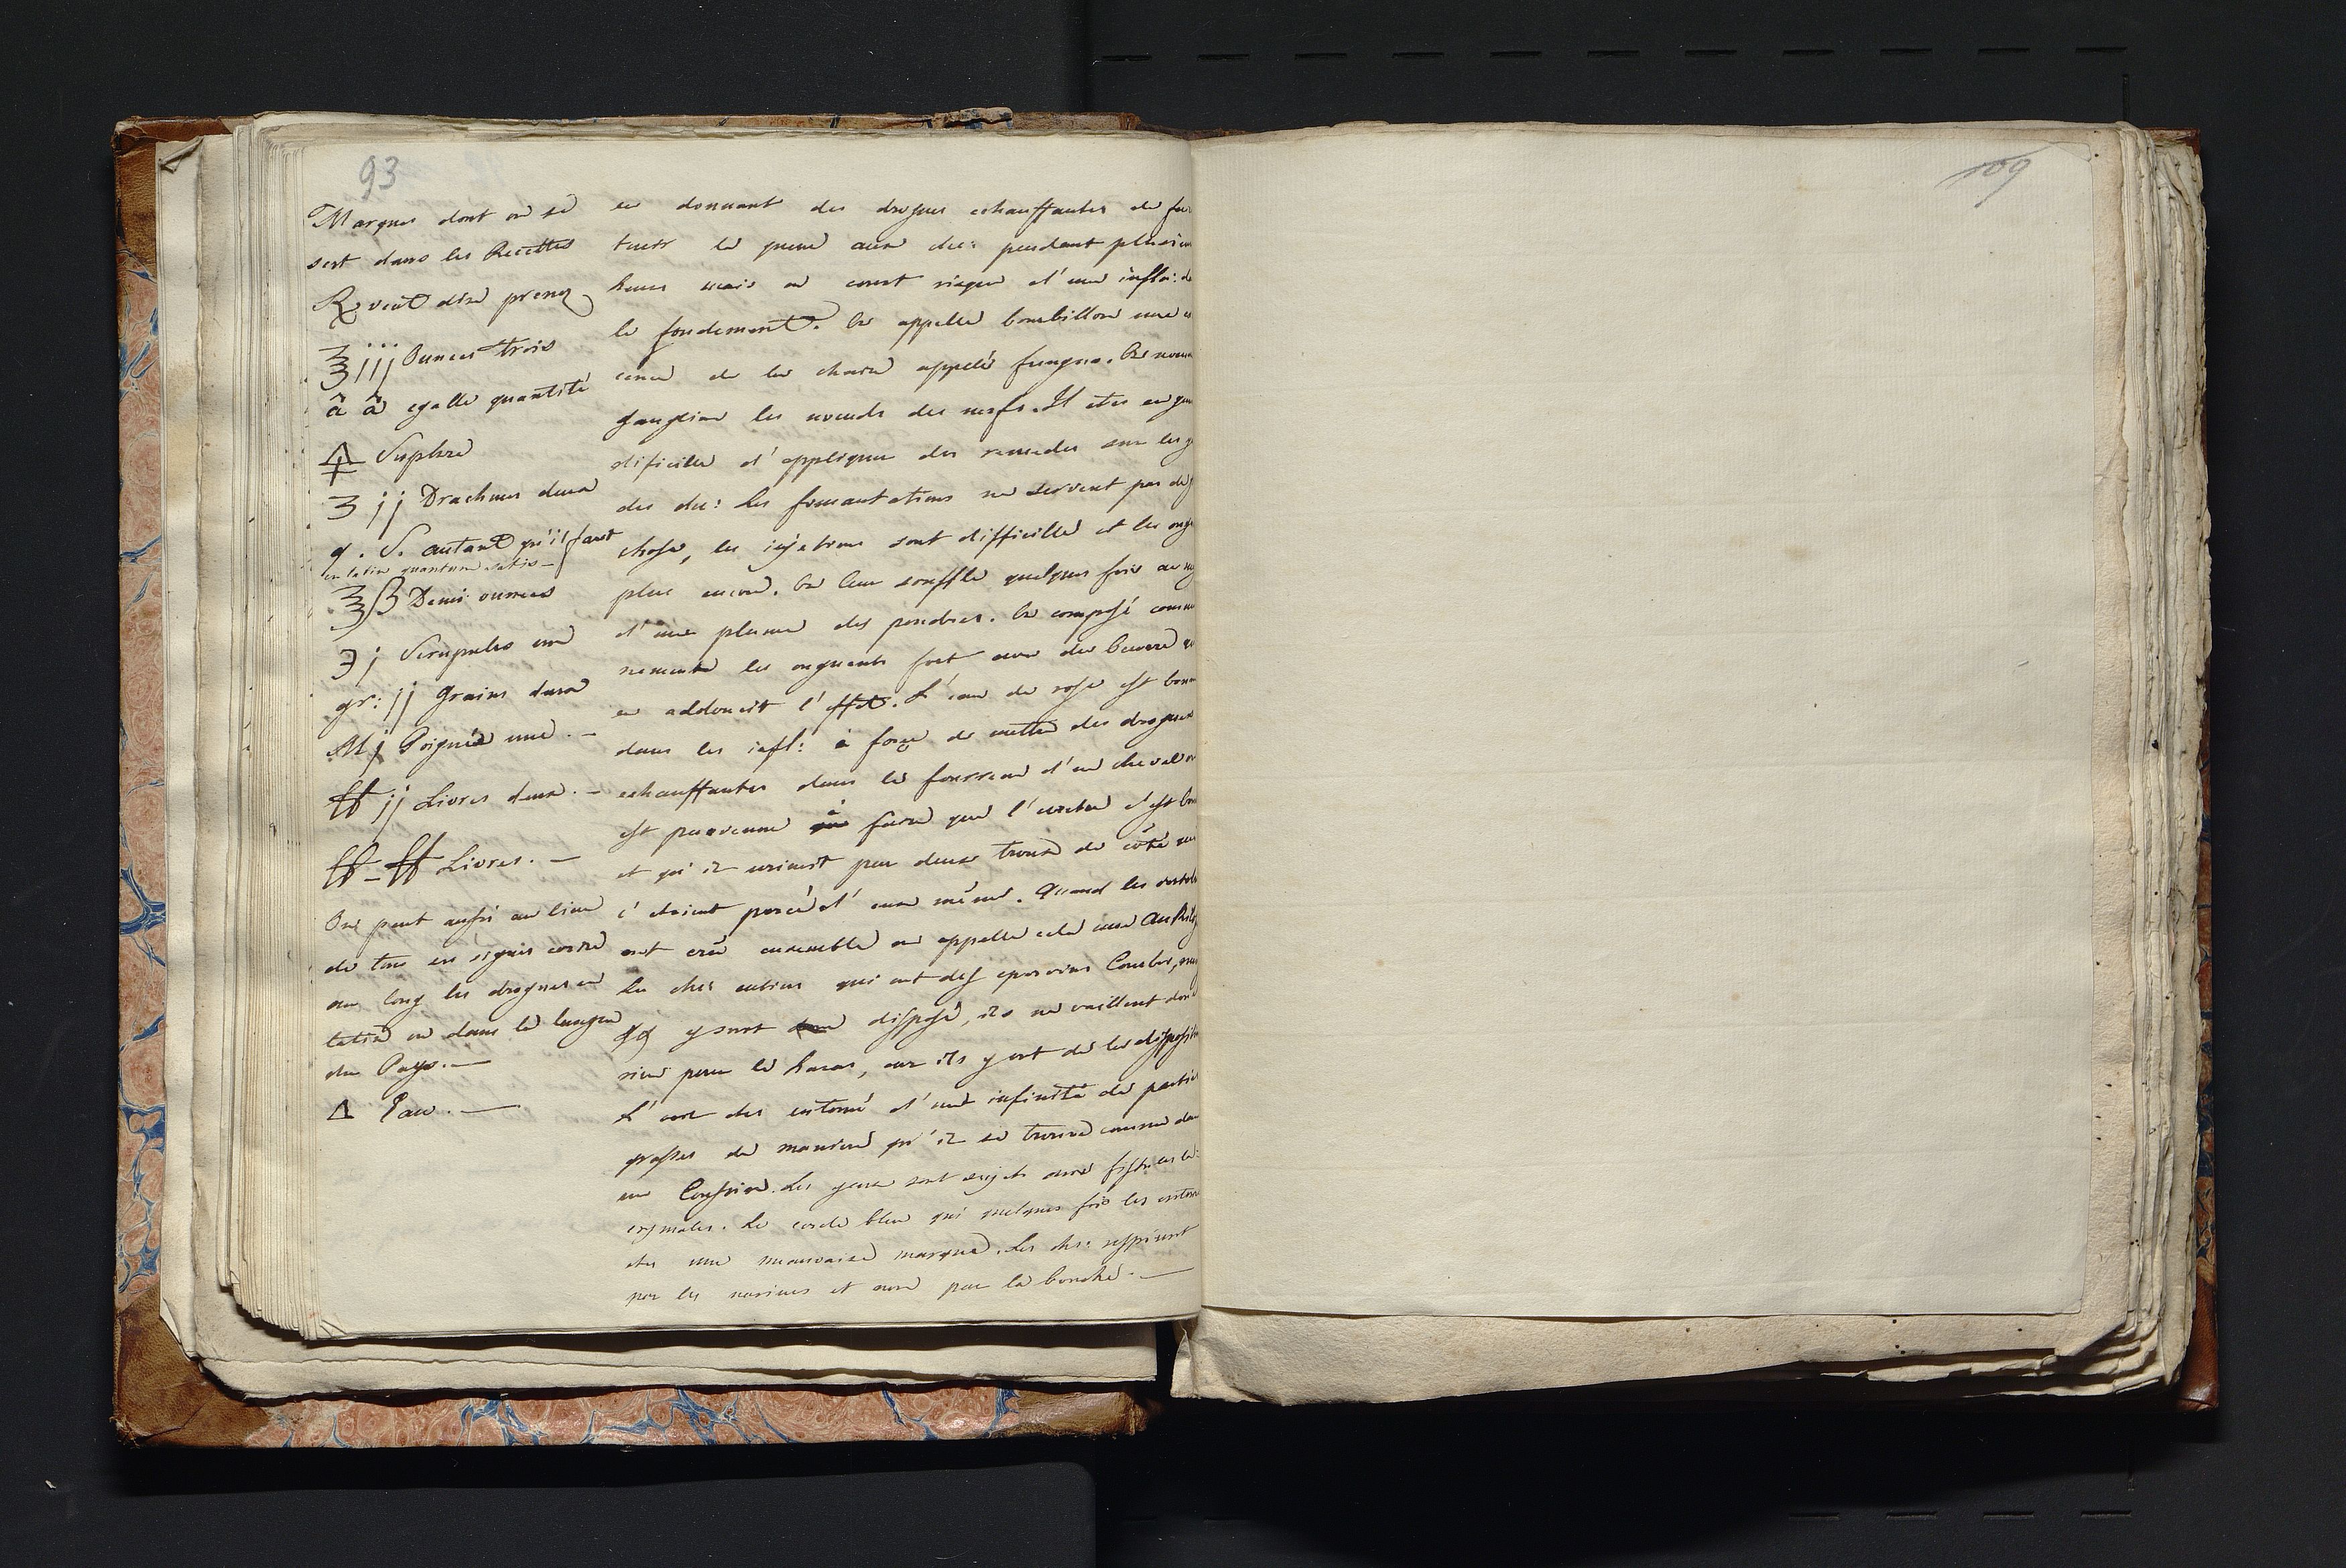 93
Marques dont on se
sert dans les Recettes
℞ veut dire prenez
℥ iij Ounces trois
â â egalle quantité
🜍 Sulphre
ʒ ij Drachmes deux
q. S. autant qu'il faut
en latin quantum satis —
℥ß Demi ounces
℈j Scrupules une
gr: ij Grains deux
M j Poignée une. —
℔ ij Livres deux. —
℔ - ℔ Livres. —
On peut aussi au lieu
de tous ces signes ecrire
au long les drogues en
latin ou dans la langue
du Pays. —
∆ Eau. —
en donnant des drogues echauffantes de faire
tenir la queue aux che: pendant plusieurs
heures mais on court risque d'une infla: de
le fondement. On appelle bourbillon une
de la chaire appelé fungus. On nomme
ganglion les noeuds des nerfs. Il etes en
dificile d'appliquer des remedes sur les
des che: Les fomantations ne servent pas de
chose, les injetions sont difficille et les
plus encore. On leur souffle quelques fois au
d'une plume des poudres. On composé commu
nement les onguents fort avec du beurre
en addoucit l'effet. L'eau de rose est bonne
dans les infl: à force de mettre des drogues
echauffantes dans le fourreau d'un cheval on
est parvenue à faire que l'uretre s'est
et qu'il urinoit par deux trous de côté
s'etoient percé d'eux même. Quand les
ont crü ensemble on appelle cela une
Les che: entiers qui ont des eparvins Courbes,
y sont disposé, ils ne vaillent donc
rien pour le haras, car ils y ont de la disposition
L'oeil des entouré d'une infinité de parties
grasses de maniere qu'il se trouve comme dans
un Coussin. Les yeux sont sujets aux fistules la:
crymales. Le cercle bleu qui quelques fois les entoure
etes une mauvaise marque. Les che: respirent
par les narines et non par la bouche. —
109